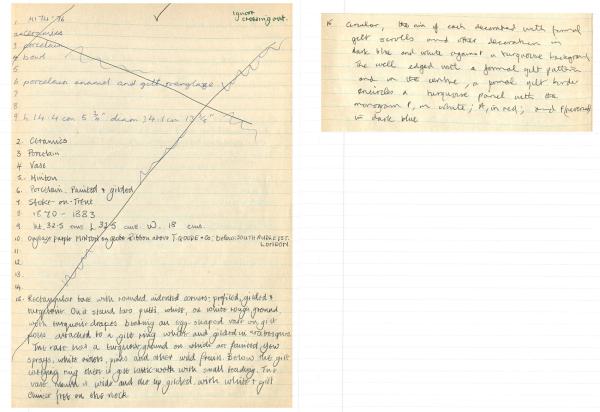 ignore
crossing out.
1. M174-'76
2 ceramics
3 porcelain
4 bowl
5
6 porcelain enamel and gilt overglaze
7
8
9 h 14.4 cm 5 ⅝" diam 34.1 cm 13 ⅜"
2. Ceramics
3 Porcelain
4 Vase
5 Minton
6. Porcelain. Painted & gilded
7 Stoke-on-Trent
8 1870 - 1883
9 ht. 32.5 cms L. 31.5 cms W. 18 cms.
10 purple MINTON on ribbon above T. GOODE & Co. below: SOUTH AUDLEY ST.
LONDON
11.
12.
13.
14.
15. Rectangular base with rounded indented corners; profiled, gilded &
turquoise. On it stand two putti, white, on white rough ground,
with turquoise drapes bearing an egg-shaped vase on gilt
poles attached to a gilt ring wheat and gilded in arabesques.
The vase has a turquoise ground on which are painted yew
sprays, white violets, pinks and other wild fruits. Below the gilt
carrying ring there is gilt lattice work with small beading. The
vase mouth is wide and the lip gilded, with white & gilt
Chinese frets on the neck.
15 Circular, the rim of each decorated with formal
gilt scrolls and other decoration in
dark blue and white against a turquoise background.
The well edged with a formal gilt pattern
and in the centre, a formal gilt border
encircles a turquoise panel with the
monogram P, in white; A, in red; and P(reversed)
in dark blue